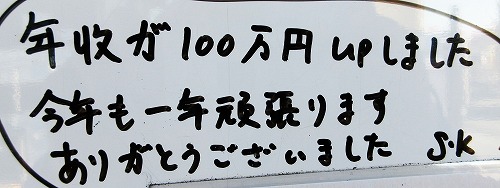 年収が100万円upしました
今年も一年頑張ります
ありがとうございました S・K